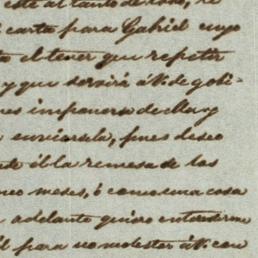 esté al tanto de eso, se
carta para Gabriel cuyo
el tener que repetir
y que servirá á V. de gobi-
nes imponerse de ella y
enviársela, pues deseo
él la remesa de las
meses, ó como una cosa
adelante quiero entenderme
él para no molestar á V. con